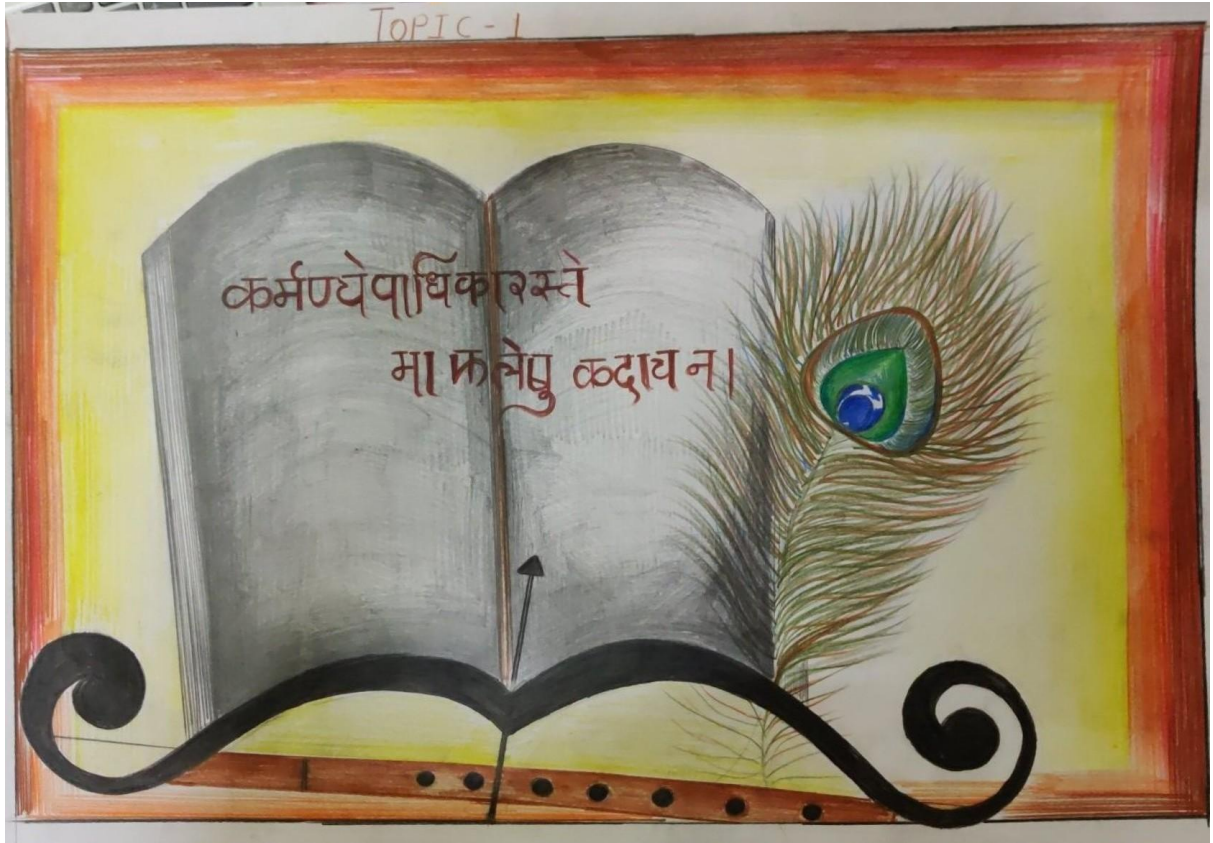 TOPIC-1
कर्मण्येवाधिकारस्ते
मा फलेषु कदाचन।